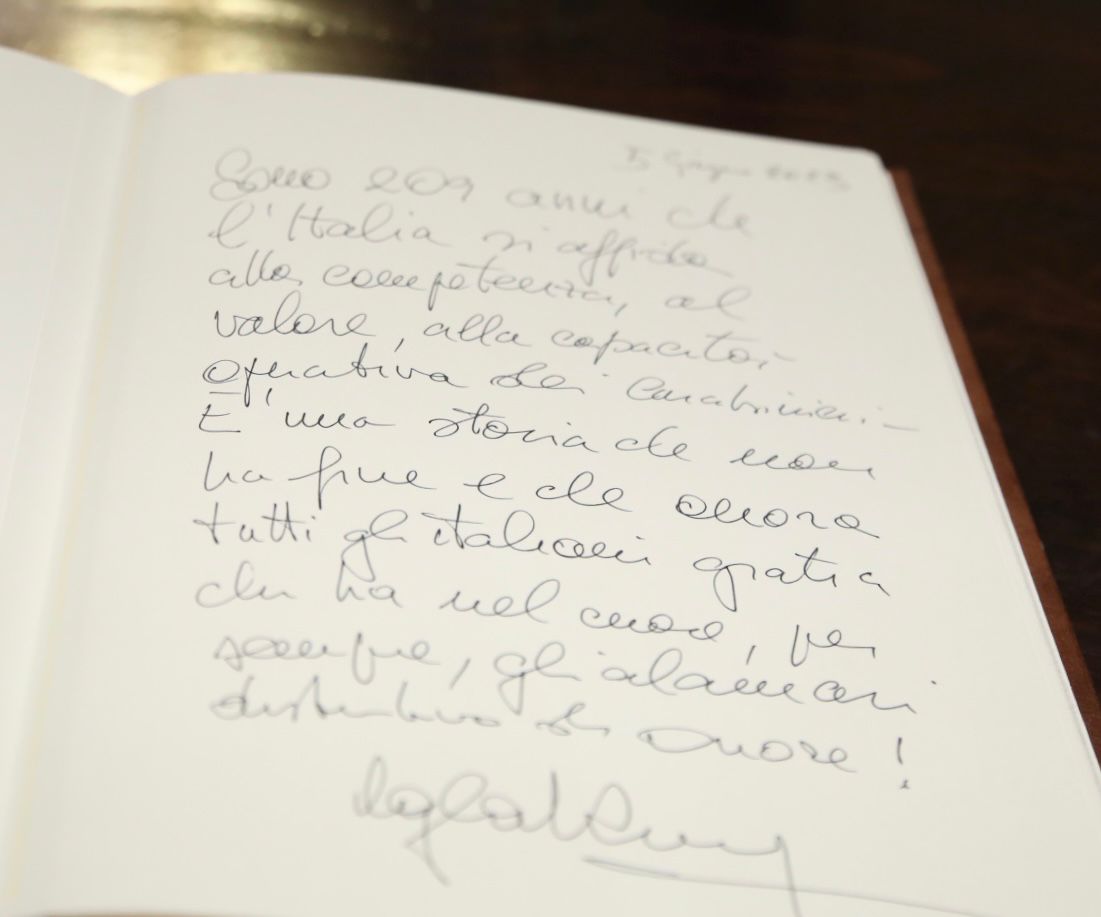 5 Giugno 2023
Sono 209 anni che
l'Italia si affida
alla competenza, al
valore, alla capacità
operativa dei Carabinieri.
E' una storia che non
ha fine e che onora
tutti gli italiani grati a
chi ha nel cuore, per
sempre, gli alamari
distintivo di onore!